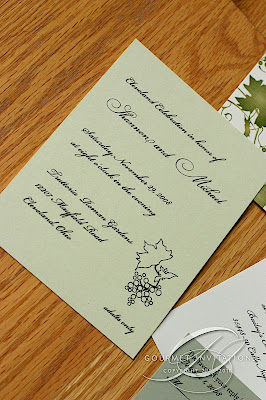 Cleveland Celebration in honor of
Shannon and Michael
Saturday, November 29, 2008
at eight o'clock in the evening
Trattoria Roman Gardens
12207 Mayfield Road
Cleveland, Ohio
adults only
GOURMET INVITATIONS